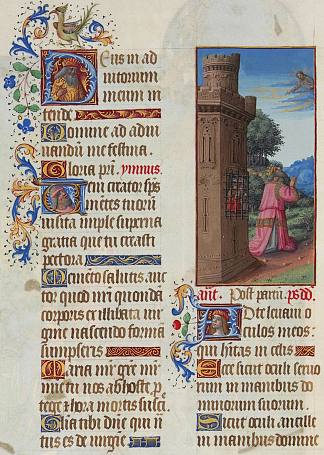 Deus in ad
iutorium
meum in
tende
Domine ad adiu
uandū me festina.
Gloria prī. ymnus.
Veni creator sp̄s
mētes tuorū
uisita imple superna
gratia que tu creasti
pectora
Memēto salutis auc
tor quod nr̄i quondā
corporis ex illibata uir
gine nascendo formā
sumpseris
Maria mr̄ gr̄e mr̄
mīe tu nos ab hoste p̄
tege et hora mortis susci
Gloria tibi dn̄e qui n
tus es de uirgīe
Ant. Post partū. ps. dd.
Ad te leuaui o
culos meos:
qui hītas in celis
Ecce sicut oculi seruo
rum in manibus do
minorum suorum.
Sicut oculi ancille
in manibus domine